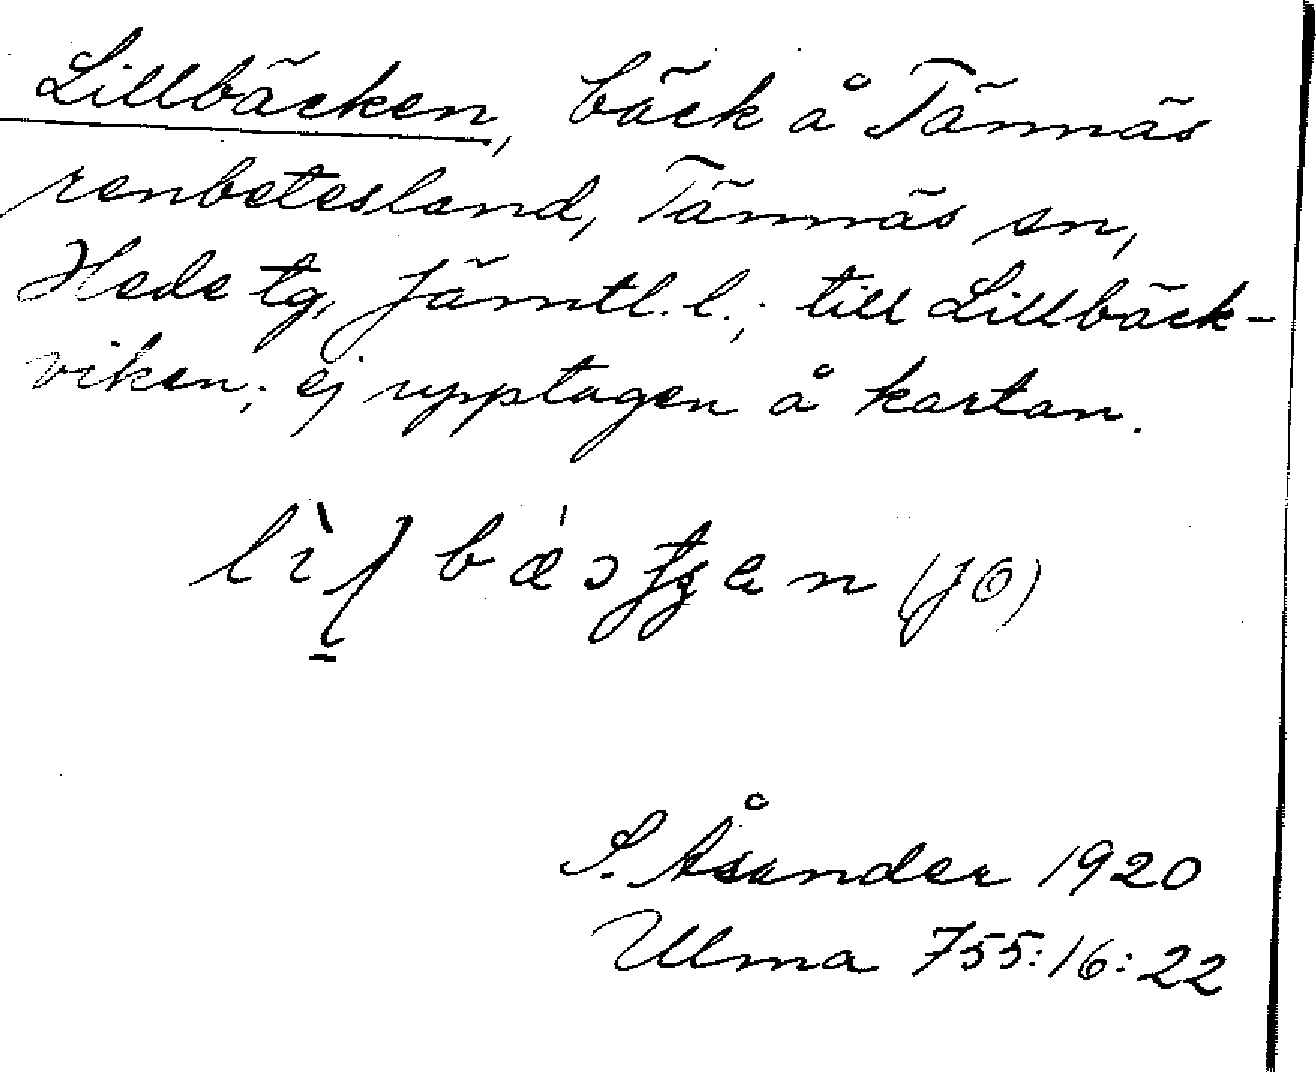 Lillbäcken, bäck å Tännäs
renbetesland, Tännäs sn,
Hede tg, Jämtl. l.; till Lillbäck-
viken; ej upptagen å kartan.
(JÖ)
S. Åsander 1920
Ulma 755:16:22